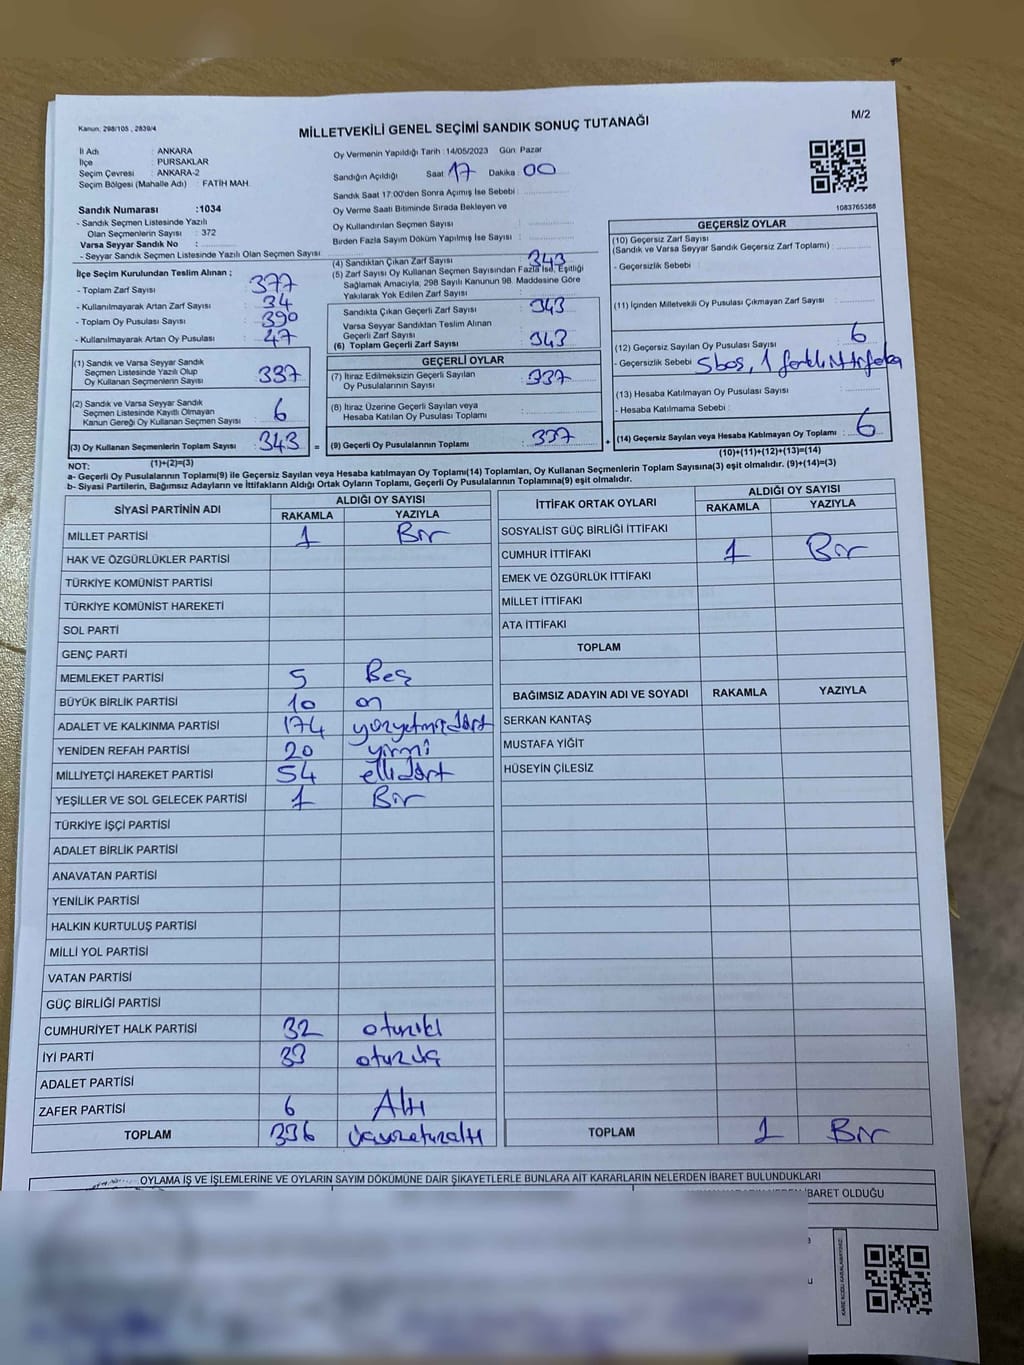 Kanun; 298/105 , 2839/4
M/2
MİLLETVEKİLİ GENEL SEÇİMİ SANDIK SONUÇ TUTANAĞI
İl Adı : ANKARA
İlçe : PURSAKLAR
Seçim Çevresi : ANKARA-2
Seçim Bölgesi (Mahalle Adı) : FATİH MAH.
Sandık Numarası :1034
- Sandık Seçmen Listesinde Yazılı
Olan Seçmenlerin Sayısı : 372
Varsa Seyyar Sandık No :
- Seyyar Sandık Seçmen Listesinde Yazılı Olan Seçmen Sayısı :
İlçe Seçim Kurulundan Teslim Alınan ;
- Toplam Zarf Sayısı : 377
- Kullanılmayarak Artan Zarf Sayısı : 34
- Toplam Oy Pusulası Sayısı : 390
- Kullanılmayarak Artan Oy Pusulası : 47
(1) Sandık ve Varsa Seyyar Sandık
Seçmen Listesinde Yazılı Olup
Oy Kullanan Seçmenlerin Sayısı : 337
(2) Sandık ve Varsa Seyyar Sandık
Seçmen Listesinde Kayıtlı Olmayan
Kanun Gereği Oy Kullanan Seçmen Sayısı : 6
(3) Oy Kullanan Seçmenlerin Toplam Sayısı : 343
(1)+(2)=(3)
Oy Vermenin Yapıldığı Tarih : 14/05/2023 Gün: Pazar
Sandığın Açıldığı Saat 17 Dakika 00
Sandık Saat 17:00'den Sonra Açımış İse Sebebi :
Oy Verme Saati Bitiminde Sırada Bekleyen ve
Oy Kullandırılan Seçmen Sayısı :
Birden Fazla Sayım Döküm Yapılmış İse Sayısı :
(4) Sandıktan Çıkan Zarf Sayısı : 343
(5) Zarf Sayısı Oy Kullanan Seçmen Sayısından Fazla İse, Eşitliği
Sağlamak Amacıyla, 298 Sayılı Kanunun 98. Maddesine Göre
Yakılarak Yok Edilen Zarf Sayısı :
Sandıkta Çıkan Geçerli Zarf Sayısı : 343
Varsa Seyyar Sandıktan Teslim Alınan
Geçerli Zarf Sayısı :
(6) Toplam Geçerli Zarf Sayısı : 343
GEÇERLİ OYLAR
(7) İtiraz Edilmeksizin Geçerli Sayılan
Oy Pusulalarının Sayısı : 337
(8) İtiraz Üzerine Geçerli Sayılan veya
Hesaba Katılan Oy Pusulası Toplamı :
= (9) Geçerli Oy Pusulalarının Toplamı : 337 +
1083765388
GEÇERSİZ OYLAR
(10) Geçersiz Zarf Sayısı
(Sandık ve Varsa Seyyar Sandık Geçersiz Zarf Toplamı) :
- Geçersizlik Sebebi :
(11) İçinden Milletvekili Oy Pusulası Çıkmayan Zarf Sayısı :
(12) Geçersiz Sayılan Oy Pusulası Sayısı : 6
- Geçersizlik Sebebi : 5 boş, 1 farklı ittifaka
(13) Hesaba Katılmayan Oy Pusulası Sayısı :
- Hesaba Katılmama Sebebi :
(14) Geçersiz Sayılan veya Hesaba Katılmayan Oy Toplamı : 6
(10)+(11)+(12)+(13)=(14)
NOT:
a- Geçerli Oy Pusulalarının Toplamı(9) ile Geçersiz Sayılan veya Hesaba katılmayan Oy Toplamı(14) Toplamları, Oy Kullanan Seçmenlerin Toplam Sayısına(3) eşit olmalıdır. (9)+(14)=(3)
b- Siyasi Partilerin, Bağımsız Adayların ve İttifakların Aldığı Ortak Oyların Toplamı, Geçerli Oy Pusulalarının Toplamına(9) eşit olmalıdır.
SİYASİ PARTİNİN ADI ALDIĞI OY SAYISI
RAKAMLA YAZIYLA
MİLLET PARTİSİ 1 Bir
HAK VE ÖZGÜRLÜKLER PARTİSİ
TÜRKİYE KOMÜNİST PARTİSİ
TÜRKİYE KOMÜNİST HAREKETİ
SOL PARTİ
GENÇ PARTİ
MEMLEKET PARTİSİ 5 Beş
BÜYÜK BİRLİK PARTİSİ 10 on
ADALET VE KALKINMA PARTİSİ 174 yüzyetmişdört
YENİDEN REFAH PARTİSİ 20 yirmi
MİLLİYETÇİ HAREKET PARTİSİ 54 ellidört
YEŞİLLER VE SOL GELECEK PARTİSİ 1 Bir
TÜRKİYE İŞÇİ PARTİSİ
ADALET BİRLİK PARTİSİ
ANAVATAN PARTİSİ
YENİLİK PARTİSİ
HALKIN KURTULUŞ PARTİSİ
MİLLİ YOL PARTİSİ
VATAN PARTİSİ
GÜÇ BİRLİĞİ PARTİSİ
CUMHURİYET HALK PARTİSİ 32 otuziki
İYİ PARTİ 33 otuzüç
ADALET PARTİSİ
ZAFER PARTİSİ 6 Altı
TOPLAM 336 üçyüzotuzaltı
İTTİFAK ORTAK OYLARI ALDIĞI OY SAYISI
RAKAMLA YAZIYLA
SOSYALİST GÜÇ BİRLİĞİ İTTİFAKI
CUMHUR İTTİFAKI 1 Bir
EMEK VE ÖZGÜRLÜK İTTİFAKI
MİLLET İTTİFAKI
ATA İTTİFAKI
TOPLAM
BAĞIMSIZ ADAYIN ADI VE SOYADI RAKAMLA YAZIYLA
SERKAN KANTAŞ
MUSTAFA YİĞİT
HÜSEYİN ÇİLESİZ
TOPLAM 1 Bir
OYLAMA İŞ VE İŞLEMLERİNE VE OYLARIN SAYIM DÖKÜMÜNE DAİR ŞİKAYETLERLE BUNLARA AİT KARARLARIN NELERDEN İBARET BULUNDUKLARI
İBARET OLDUĞU